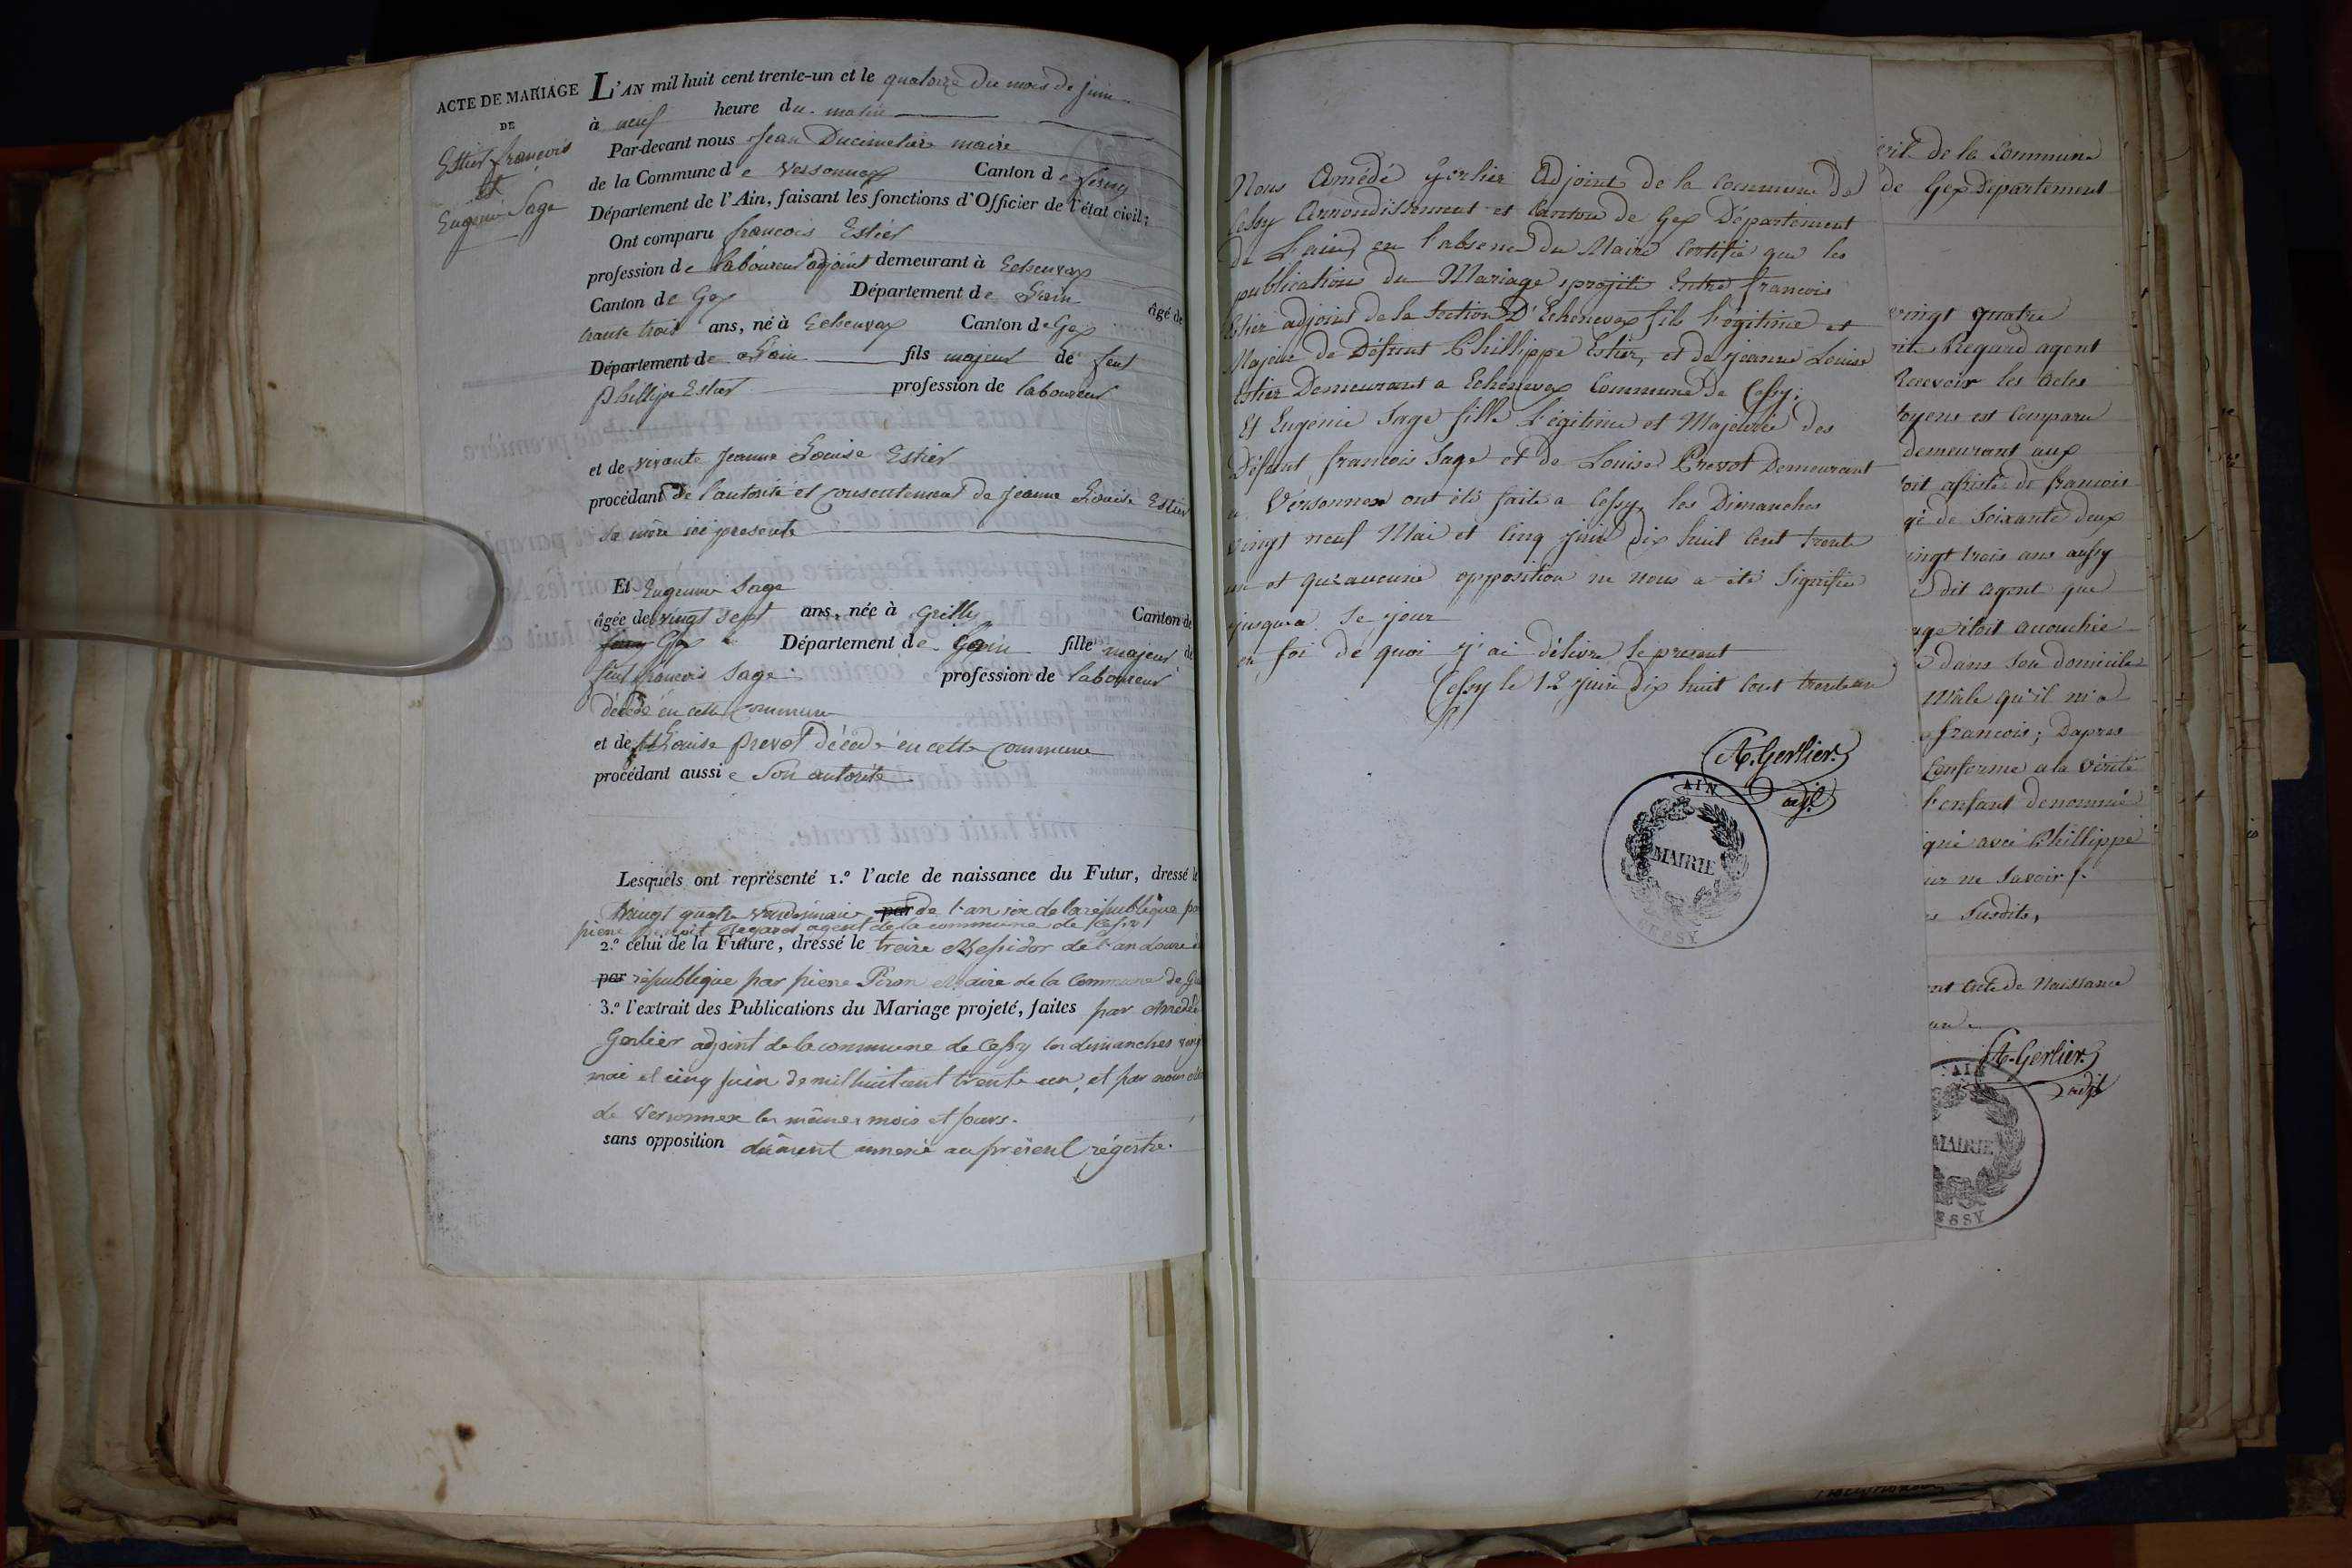 ACTE DE MARIAGE
DE
Estier françois
et
Eugenie Sage
L'AN mil huit cent trente-un et le quatorze du mois de juin
à neuf heure du matin
Par-devant nous Jean Ducimetière maire
de la Commune de Versonnex Canton de ferney
Département de l'Ain, faisant les fonctions d'Officier de l'état civil;
Ont comparu françois Estier
profession de laboureur adjoint demeurant à Echenvex
Canton de Gex Département de L'ain âgé de
trante trois ans, né à Echenvex Canton de Gex
Département de L'ain fils majeur de feu
Phillipe Estier profession de laboureur
et de vivante Jeanne Louise Estier
procédant de l'autorité et consentement de Jeanne Louise Estier
sa mère ici presente
Et Eugenie Sage
âgée de vingt sept ans, née à Grilly Canton de
Gex Département de L'ain fille majeur de
feu francois Sage profession de laboureur
décédé en cette Commune
et de Louise Prevot décédé en cette Commune
procédant aussi de son autorité
Lesquels ont représenté 1.° l'acte de naissance du Futur, dressé le
vingt quatre vendemiaire par de l'an six de la république par
piere Benoit Regard agent de la commune de Cessy
2.° celui de la Future, dressé le treize Messidor de l'an douze
par république par piere Peron Maire de la Commune de
3.° l'extrait des Publications du Mariage projeté, faites par Amédée
Gerlier adjoint de la commune de Cessy les dimanches vingt
mai et cinq juin de mil huit cent trente un, et par nous
de Versonnex les mêmes mois et jours.
sans opposition dûment annexé au présent régistre.
Nous Amédé Gerlier Adjoint de la Commune de
Cessy Arrondissement et Canton de Gex Département
de L'ain, en l'absence du Maire Certifie que les
publication du Mariage projité Entre francois
Estier adjoint de la Section D'Echenevex fils légitime et
Majeur de Défunt Phillippe Estier, et de jeanne Louise
Estier Demeurant a Echenevex Commune de Cessy;
Et Eugénie Sage fille Légitime et Majeure des
Défunt francois Sage et de Louise Prevot Demeurant
a Versonnex ont été faite a Cessy, les Dimanches
vingt neuf Mai et Cinq Juin Dix huit Cent trente
un et qu'aucune opposition ne nous a été Signifiée
jusqua Se jour
en foi de quoi j'ai délivré le présent
Cessy le 12 Juin Dix huit Cent trente un
A. Gerlier.
adjt
AIN
MAIRIE
CESSY
de la Commune
de Gex Département
vingt quatre
Regard agent
Recevoir les actes
est Comparu
demeurant aux
assisté de francois
de Soixante deux
vingt trois ans aussy
dit agent que
étoit accouchée
dans Son domicile
Mâle qu'il m'a
francois; Dapres
Conforme a la vérité
l'enfant denommé
avec Phillippe
ne Savoir
Susdits,
acte de Naissance
A. Gerlier.
adjt
AIN
MAIRIE